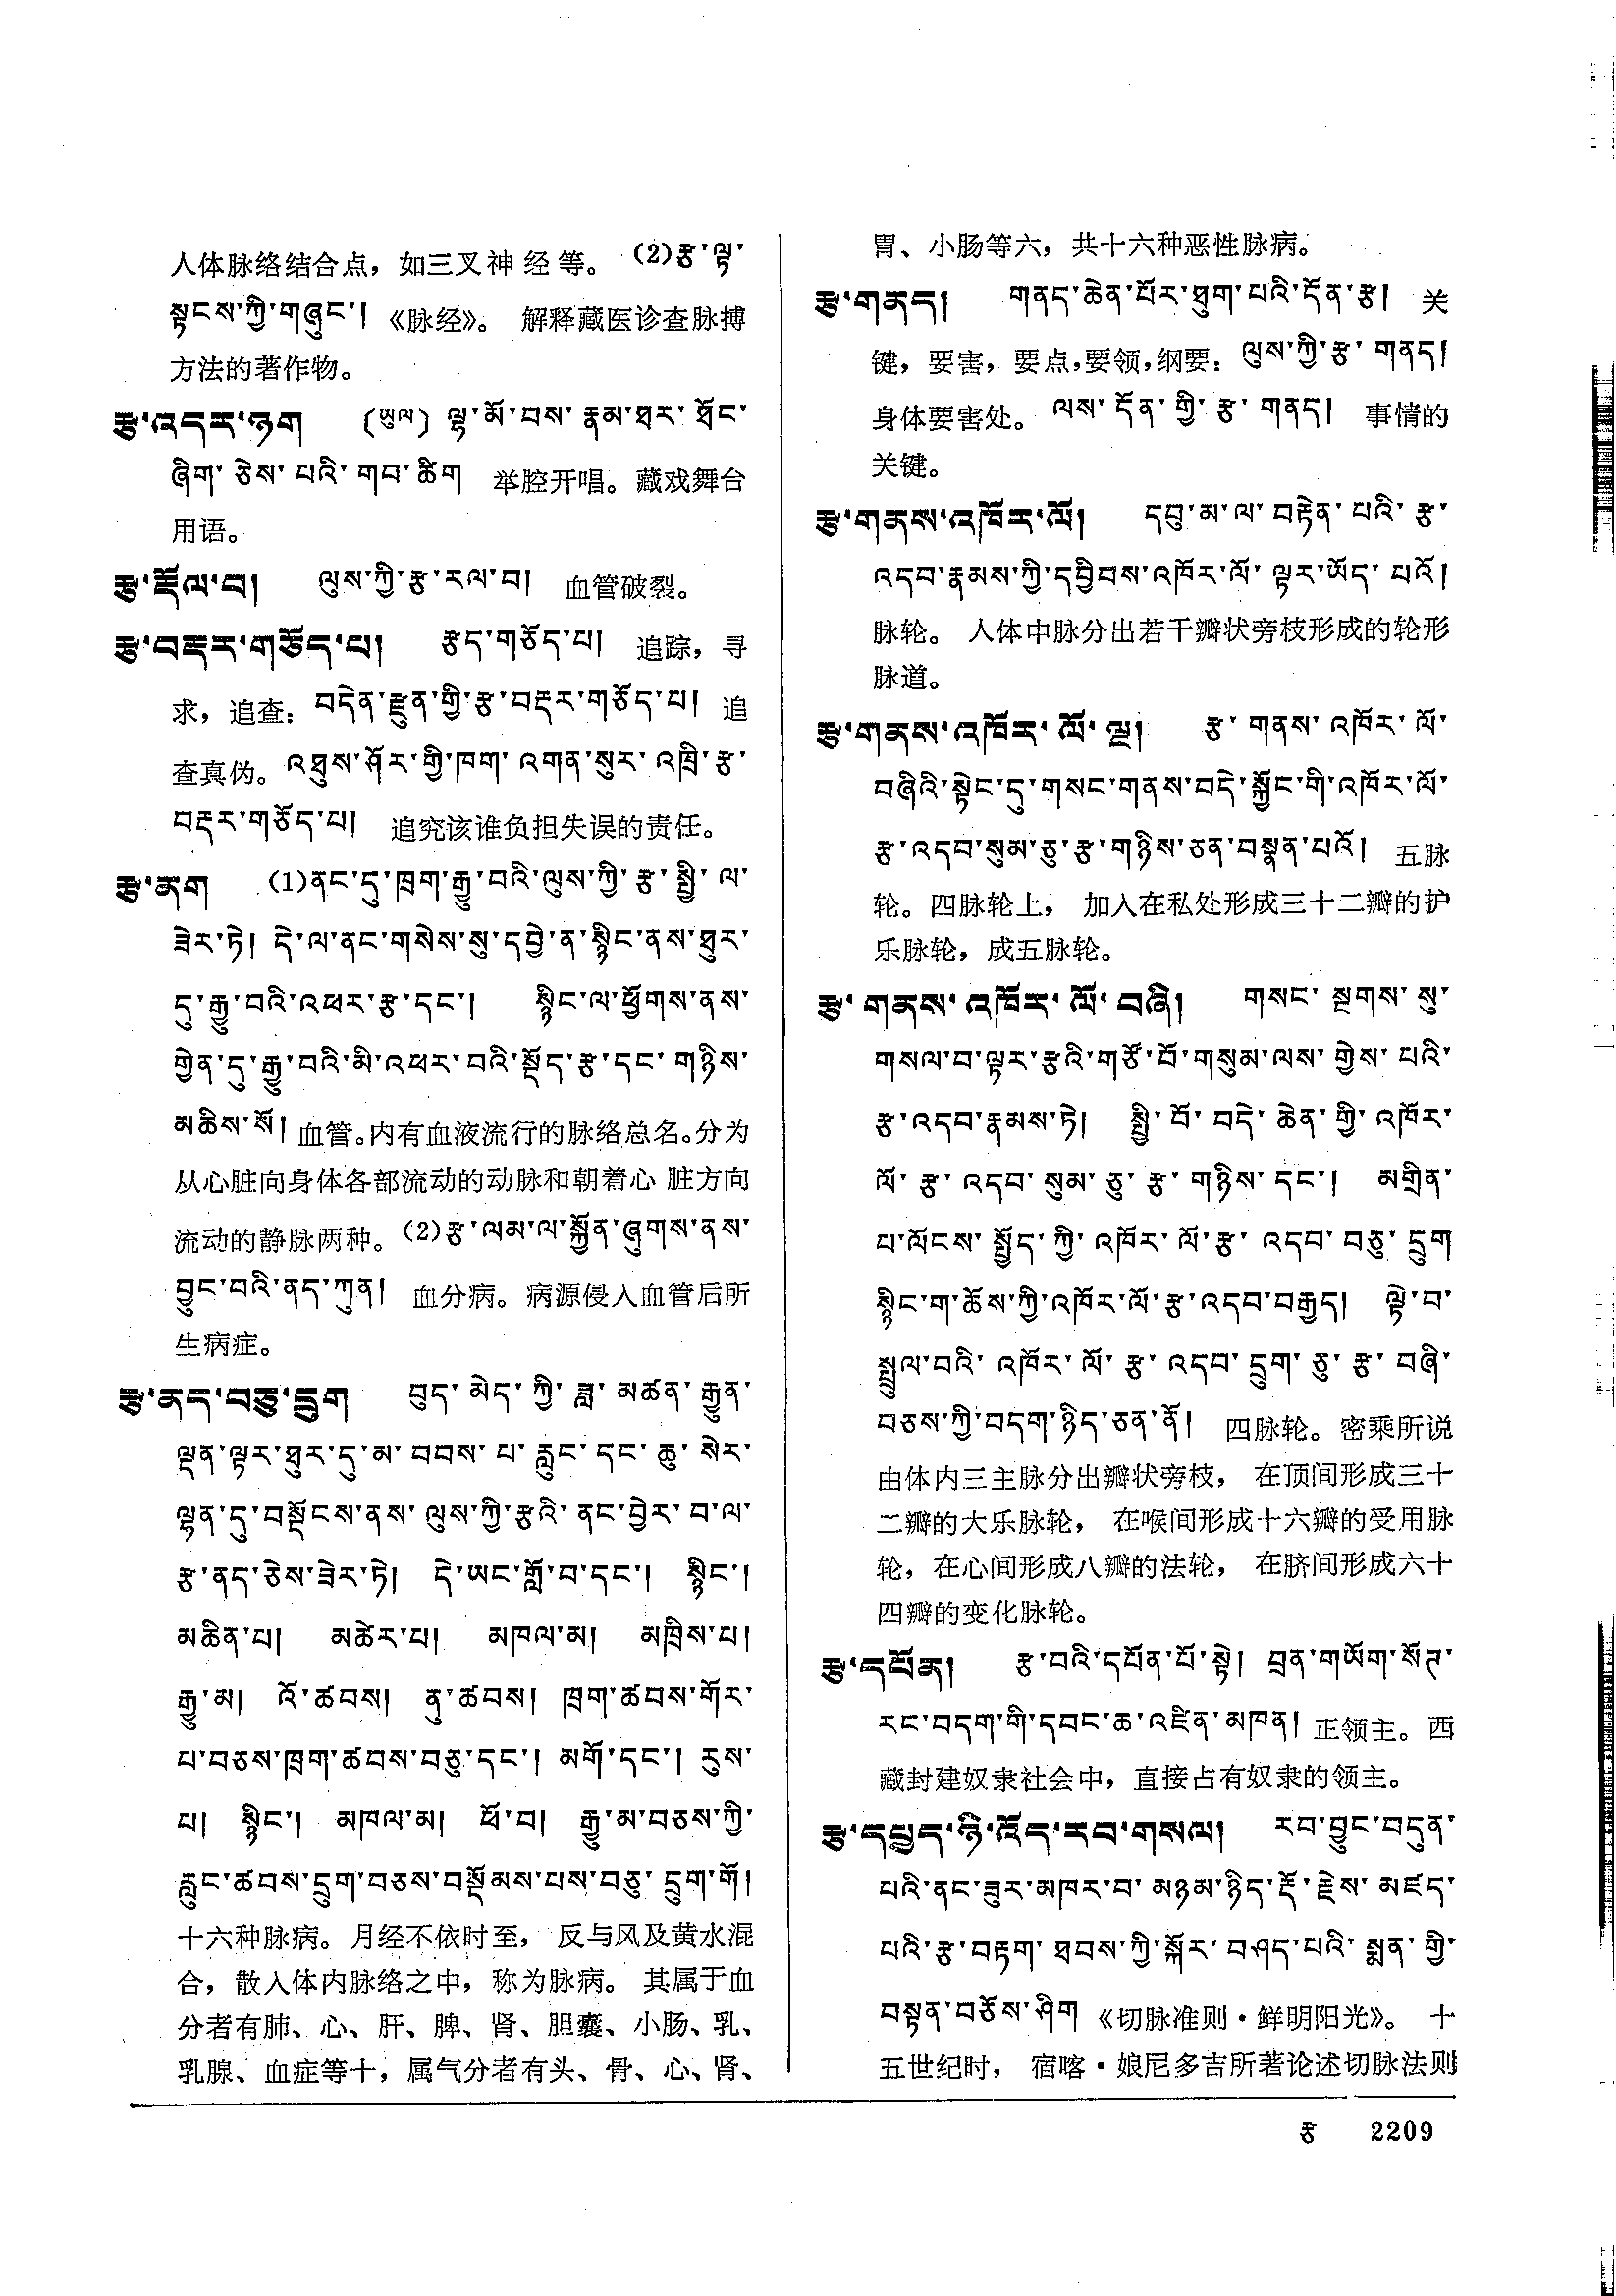 人体脉络结合点，如三叉神经等。(2)རྩ་ལྟ་
སྟངས་ཀྱི་གཞུང་། 《脉经》。 解释藏医诊查脉搏
方法的著作物。
རྩ་འདར་ཉག (ཡུལ) ལྷ་མོ་བས་རྣམ་ཐར་ཐོང་
ཞིག་ཅེས་པའི་གབ་ཚིག 举腔开唱。藏戏舞台
用语。
རྩ་རྡོལ་བ། ལུས་ཀྱི་རྩ་རལ་བ། 血管破裂。
རྩ་བརྡར་གཅོད་པ། རྩད་གཅོད་པ། 追踪，寻
求，追查：བདེན་རྫུན་གྱི་རྩ་བརྡར་གཅོད་པ། 追
查真伪。འཐུས་ཤོར་གྱི་ཁག་འགན་སུར་འཁྲི་རྩ་
བརྡར་གཅོད་པ། 追究该谁负担失误的责任。
རྩ་ནག (1)ནང་དུ་ཁྲག་རྒྱུ་བའི་ལུས་ཀྱི་རྩ་སྤྱི་ལ་
ཟེར་ཏེ། དེ་ལ་ནང་གསེས་སུ་དབྱེ་ན་སྙིང་ནས་ཐུར་
དུ་རྒྱུ་བའི་འཕར་རྩ་དང་། སྙིང་ལ་ཕྱོགས་ནས་
གྱེན་དུ་རྒྱུ་བའི་མི་འཕར་བའི་སྡོད་རྩ་དང་གཉིས་
མཆིས་སོ། 血管。内有血液流行的脉络总名。分为
从心脏向身体各部流动的动脉和朝着心脏方向
流动的静脉两种。(2)རྩ་ལམ་ལ་སྐྱོན་ཞུགས་ནས་
བྱུང་བའི་ནད་ཀུན། 血分病。病源侵入血管后所
生病症。
རྩ་ནད་བཅུ་དྲུག བུད་མེད་ཀྱི་ཟླ་མཚན་རྒྱུན་
ལྡན་ལྟར་ཐུར་དུ་མ་བབས་པ་རླུང་དང་ཆུ་སེར་
ལྷན་དུ་བསྡོངས་ནས་ལུས་ཀྱི་རྩའི་ནང་བྱེར་བ་ལ་
རྩ་ནད་ཅེས་ཟེར་ཏེ། དེ་ཡང་གློ་བ་དང་། སྙིང་།
མཆིན་པ། མཚེར་པ། མཁལ་མ། མཁྲིས་པ།
རྒྱུ་མ། འོ་ཚབས། ནུ་ཚབས། ཁྲག་ཚབས་གོར་
པ་བཅས་ཁྲག་ཚབས་བཅུ་དང་། མགོ་དང་། རུས་
པ། སྙིང་། མཁལ་མ། ཕོ་བ། རྒྱུ་མ་བཅས་ཀྱི་
རླུང་ཚབས་དྲུག་བཅས་བསྡོམས་པས་བཅུ་དྲུག་གོ།
十六种脉病。月经不依时至， 反与风及黄水混
合，散入体内脉络之中，称为脉病。 其属于血
分者有肺、心、肝、脾、肾、胆囊、小肠、乳、
乳腺、血症等十，属气分者有头、骨、心、肾、
胃、小肠等六，共十六种恶性脉病。
རྩ་གནད། གནད་ཆེན་པོར་ཐུག་པའི་དོན་རྩ། 关
键，要害，要点，要领，纲要：ལུས་ཀྱི་རྩ་གནད།
身体要害处。ལས་དོན་གྱི་རྩ་གནད། 事情的
关键。
རྩ་གནས་འཁོར་ལོ། དབུ་མ་ལ་བརྟེན་པའི་རྩ་
འདབ་རྣམས་ཀྱི་དབྱིབས་འཁོར་ལོ་ལྟར་ཡོད་པའོ།
脉轮。 人体中脉分出若干瓣状旁枝形成的轮形
脉道。
རྩ་གནས་འཁོར་ལོ་ལྔ། རྩ་གནས་འཁོར་ལོ་
བཞིའི་སྟེང་དུ་གསང་གནས་བདེ་སྐྱོང་གི་འཁོར་ལོ་
རྩ་འདབ་སུམ་ཅུ་རྩ་གཉིས་ཅན་བསྣན་པའོ། 五脉
轮。四脉轮上， 加入在私处形成三十二瓣的护
乐脉轮，成五脉轮。
རྩ་གནས་འཁོར་ལོ་བཞི། གསང་སྔགས་སུ་
གསལ་བ་ལྟར་རྩའི་གཙོ་བོ་གསུམ་ལས་གྱེས་པའི་
རྩ་འདབ་རྣམས་ཏེ། སྤྱི་བོ་བདེ་ཆེན་གྱི་འཁོར་
ལོ་རྩ་འདབ་སུམ་ཅུ་རྩ་གཉིས་དང་། མགྲིན་
པ་ལོངས་སྤྱོད་ཀྱི་འཁོར་ལོ་རྩ་འདབ་བཅུ་དྲུག
སྙིང་ག་ཆོས་ཀྱི་འཁོར་ལོ་རྩ་འདབ་བརྒྱད། ལྟེ་བ་
སྤྲུལ་བའི་འཁོར་ལོ་རྩ་འདབ་དྲུག་ཅུ་རྩ་བཞི་
བཅས་ཀྱི་བདག་ཉིད་ཅན་ནོ། 四脉轮。密乘所说
由体内三主脉分出瓣状旁枝， 在顶间形成三十
二瓣的大乐脉轮， 在喉间形成十六瓣的受用脉
轮，在心间形成八瓣的法轮， 在脐间形成六十
四瓣的变化脉轮。
རྩ་དཔོན། རྩ་བའི་དཔོན་པོ་སྟེ། བྲན་གཡོག་སོཊ་
རང་བདག་གི་དབང་ཆ་འཛིན་མཁན། 正领主。西
藏封建奴隶社会中，直接占有奴隶的领主。
རྩ་དཔྱད་ཉི་འོད་རབ་གསལ། རབ་བྱུང་བདུན་
པའི་ནང་ཟུར་མཁར་བ་མཉམ་ཉིད་རྡོ་རྗེས་མཛད་
པའི་རྩ་བརྟག་ཐབས་ཀྱི་སྐོར་བཤད་པའི་སྨན་གྱི་
བསྟན་བཅོས་ཤིག 《切脉准则·鲜明阳光》。 十
五世纪时， 宿喀·娘尼多吉所著论述切脉法则
རྩ 2209